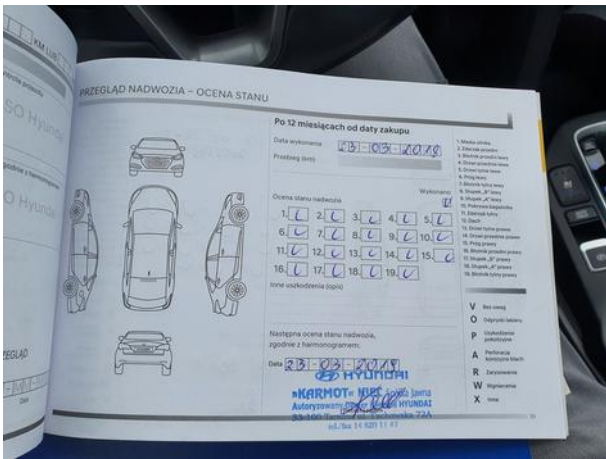 KM LUB
SO Hyundai
godnie z harmonogramem
O Hyundai
ZEGLĄD
Data
PRZEGLĄD NADWOZIA – OCENA STANU
Po 12 miesiącach od daty zakupu
Data wykonania 23-03-2018
Przebieg (km)
Ocena stanu nadwozia
Wykonano
1. 2. 3. 4. 5.
6. 7. 8. 9. 10.
11. 12. 13. 14. 15.
16. 17. 18. 19.
Inne uszkodzenia (opis)
Następna ocena stanu nadwozia,
zgodnie z harmonogramem:
Data 23-03-2019
HYUNDAI
»KARMOT« Spółka Jawna
Autoryzowany Dealer HYUNDAI
33-100 Tarnów, ul. Tuchowska 72A
1. Maska silnika
2. Zderzak przedni
3. Błotnik przedni lewy
4. Drzwi przednie lewe
5. Drzwi tylne lewe
6. Próg lewy
7. Błotnik tylny lewy
8. Słupek „B” lewy
9. Słupek „A” lewy
10. Pokrywa bagażnika
11. Zderzak tylny
12. Dach
13. Drzwi tylne prawe
14. Drzwi przednie prawe
15. Próg prawy
16. Błotnik przedni prawy
17. Słupek „B” prawy
18. Słupek „A” prawy
19. Błotnik tylny prawy
V Bez uwag
O Odpryski lakieru
P Uszkodzenie
pokolizyjne
A Perforacja
korozyjna blach
R Zarysowanie
W Wgniecenie
X Inne